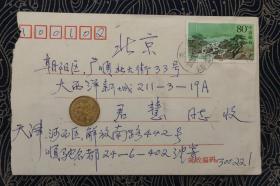 100102
80分
北京
朝阳区，广顺北大街33号
大西洋新城211-3-19A
君慧 收
天津 河西区解放南路442号
顺驰名都24-6-402
邮政编码 300221